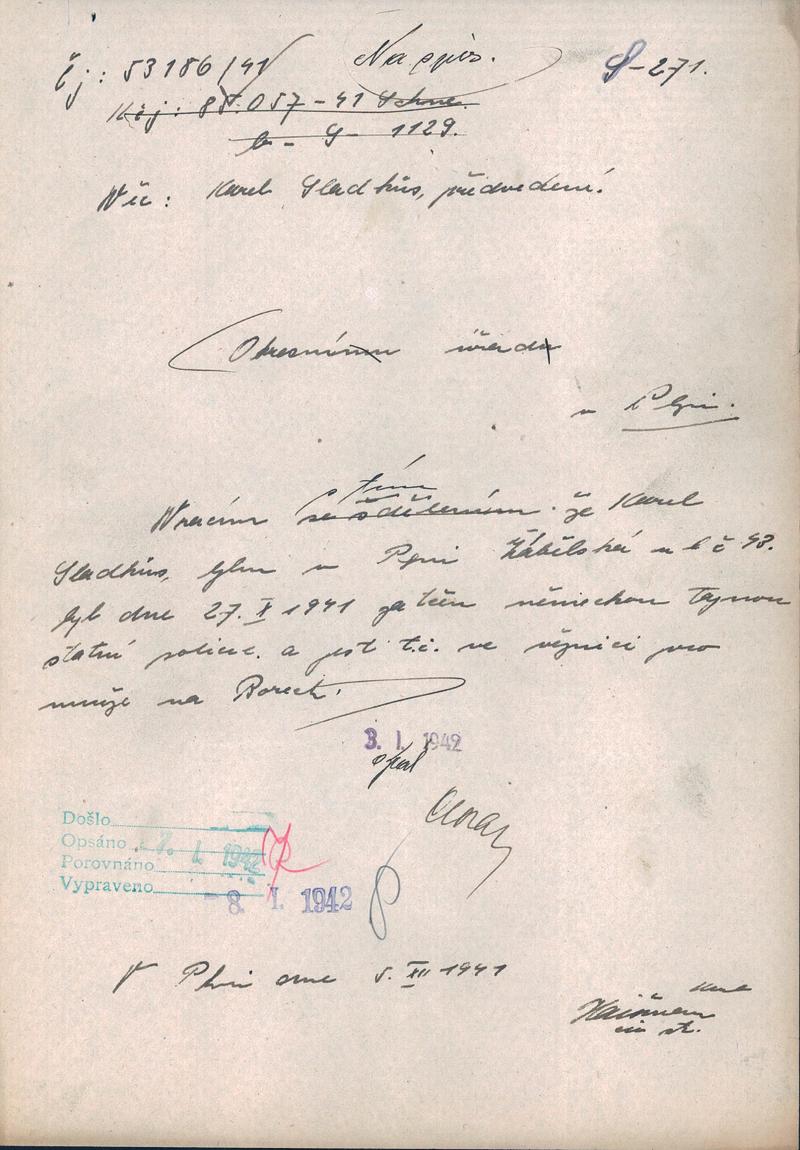 čj: 53186/41 Na spis. S-271.
Kčj: 85.057-41
b - 9 - 1129.
Věc: Karel Sladkůs, předvedení.
Okresnímu úřadu
v Plzni.
s tím
Vracím se sdělením. že Karel
Sladkůs, bytem v Plzni Žábělská ul č 43.
byl dne 27. X 1941 zatčen německou tajnou
státní policií. a jest t.č. ve věznici pro
muže na Borech.
3. I. 1942
Došlo
Opsáno 7. I. 1942
Porovnáno
Vypraveno - 8. I. 1942
V Plzni dne 5. XII 1941